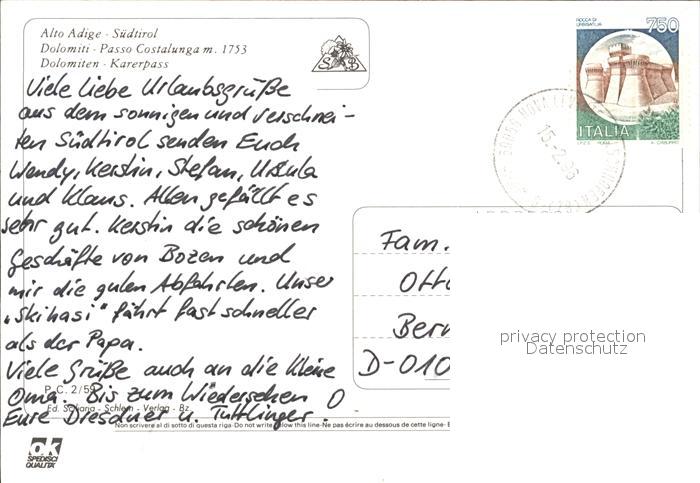 Alto Adige - Südtirol
Dolomiti - Passo Costalunga m. 1753
Dolomiten - Karerpass
S B
Viele liebe Urlaubsgrüße
aus dem sonnigen und verschnei-
ten Südtirol senden Euch
Wendy, Kerstin, Stefan, Ursula
und Klaus. Allen gefällt es
sehr gut. Kerstin die schönen
Geschäfte von Bozen und
mir die guten Abfahrten. Unser
"Skihasi" fährt fast schneller
als der Papa.
Viele Grüße auch an die kleine
Oma. Bis zum Wiedersehen
Eure Dresdner u. Tuttlinger.
P.C. 2/59
Ed. Verlag - Bz.
Non scrivere al di sotto di questa riga-Do not write below this line-Ne pas écrire au dessous de cette ligne-
OK
SPEDISCI
QUALITÀ
ROCCA DI
URBISAGLIA
750
ITALIA
15.2.96
Fam.
Otto
Bern
D-010
privacy protection
Datenschutz